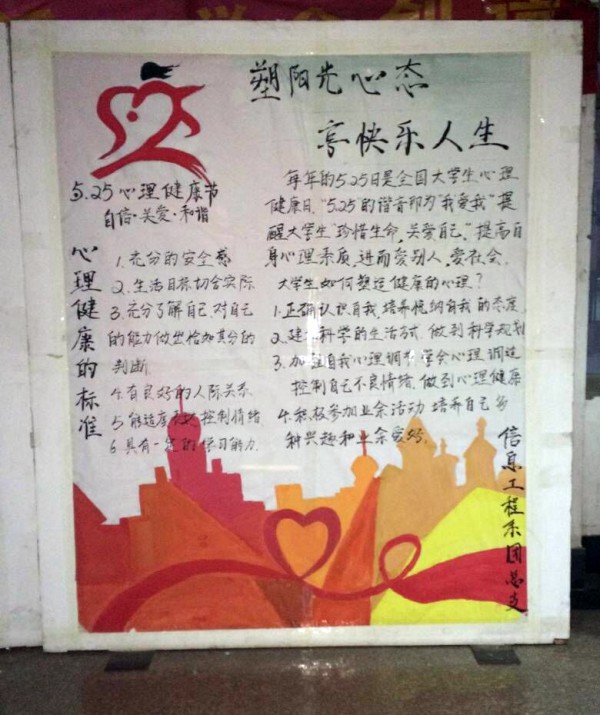 塑阳光心态
享快乐人生
5.25心理健康节
自信·关爱·和谐
心理健康的标准
1.充分的安全感
2.生活目标切合实际
3.充分了解自己,对自己
的能力做出恰如其分的
判断
4.有良好的人际关系
5.能适度控制情绪
6.具有一定的学习能力.
每年的5.25日是全国大学生心理
健康日,“5.25”的谐音即为“我爱我”提
醒大学生“珍惜生命,关爱自己,”提高自
身心理素质,进而爱别人,爱社会.
大学生如何塑造健康的心理?
1.正确认识自我,培养悦纳自我的态度
2.建立科学的生活方式,做到科学规划
3.加强自我心理调节,学会心理调适
控制自己不良情绪,做到心理健康
4.积极参加业余活动,培养自己多
种兴趣和业余爱好.
信息工程系团总支